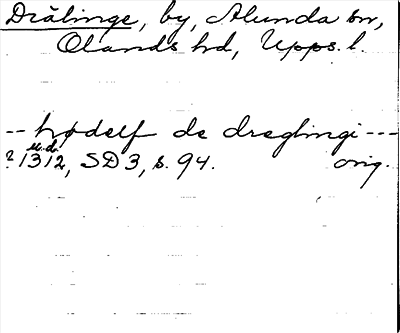 Drälinge, by, Alunda sn,
Olands hd, Upps. l.
-- hodelf de dreglingi ---
u.d.
? 1312, SD 3, s. 94. orig.